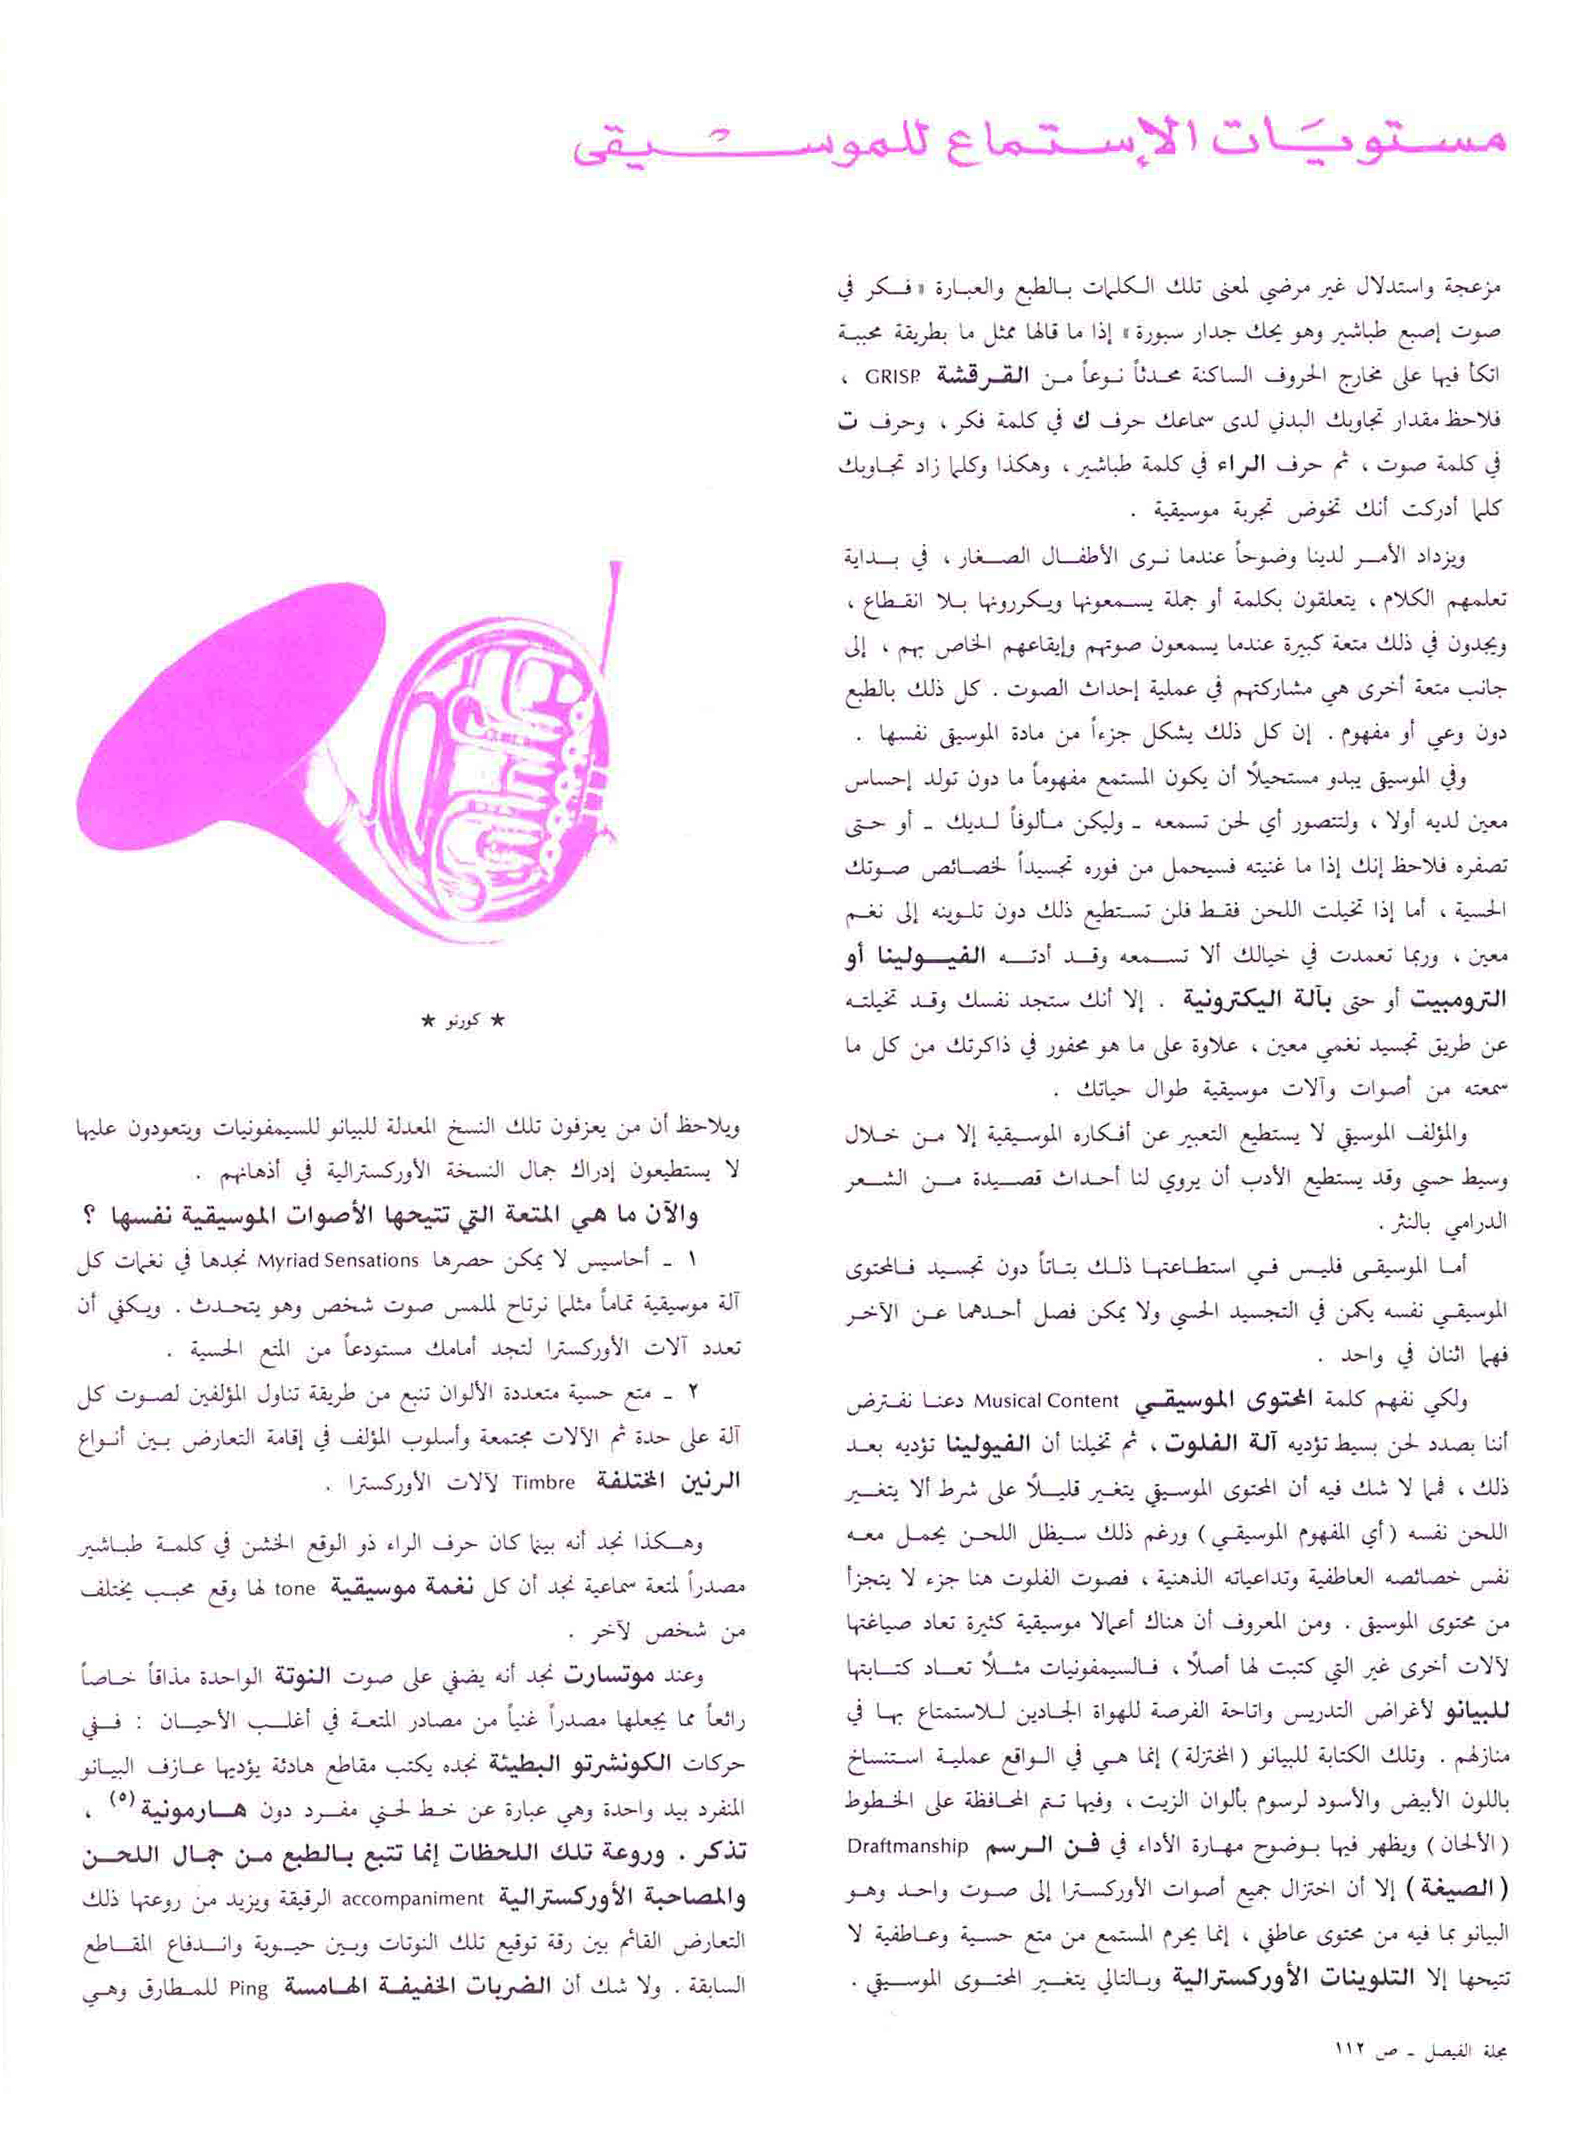 مستويات الإستماع للموسيقى
مزعجة واستدلال غير مرضي لمعنى تلك الكلمات بالطبع والعبارة « فكر في
صوت إصبع طباشير وهو يحك جدار سبورة » إذا ما قالها ممثل ما بطريقة محببة
اتكأ فيها على مخارج الحروف الساكنة محدثاً نوعاً من القرقشة GRISP ،
فلاحظ مقدار تجاوبك البدني لدى سماعك حرف ك في كلمة فكر ، وحرف ت
في كلمة صوت ، ثم حرف الراء في كلمة طباشير ، وهكذا وكلما زاد تجاوبك
كلما أدركت أنك تخوض تجربة موسيقية .
ويزداد الأمر لدينا وضوحاً عندما نرى الأطفال الصغار ، في بداية
تعلمهم الكلام ، يتعلقون بكلمة أو جملة يسمعونها ويكررونها بلا انقطاع ،
ويجدون في ذلك متعة كبيرة عندما يسمعون صوتهم وإيقاعهم الخاص بهم ، إلى
جانب متعة أخرى هي مشاركتهم في عملية إحداث الصوت . كل ذلك بالطبع
دون وعي أو مفهوم . إن كل ذلك يشكل جزءاً من مادة الموسيقى نفسها .
وفي الموسيقى يبدو مستحيلاً أن يكون المستمع مفهوماً ما دون تولد إحساس
معين لديه أولا ، ولتتصور أي لحن تسمعه ـ وليكن مألوفاً لديك ـ أو حتى
تصفره فلاحظ إنك إذا ما غنيته فسيحمل من فوره تجسيداً لخصائص صوتك
الحسية ، أما إذا تخيلت اللحن فقط فلن تستطيع ذلك دون تلوينه إلى نغم
معين ، وربما تعمدت في خيالك ألا تسمعه وقد أدته الفيولينا أو
الترومبيت أو حتى بآلة اليكترونية . إلا أنك ستجد نفسك وقد تخيلته
عن طريق تجسيد نغمي معين ، علاوة على ما هو محفور في ذاكرتك من كل ما
سمعته من أصوات وآلات موسيقية طوال حياتك .
والمؤلف الموسيقي لا يستطيع التعبير عن أفكاره الموسيقية إلا من خلال
وسيط حسي وقد يستطيع الأدب أن يروي لنا أحداث قصيدة من الشعر
الدرامي بالنثر .
أما الموسيقى فليس في استطاعتها ذلك بتاتاً دون تجسيد فالمحتوى
الموسيقي نفسه يكمن في التجسيد الحسي ولا يمكن فصل أحدهما عن الآخر
فهما اثنان في واحد .
ولكي نفهم كلمة المحتوى الموسيقي Musical Content دعنا نفترض
أننا بصدد لحن بسيط تؤديه آلة الفلوت ، ثم تخيلنا أن الفيولينا تؤديه بعد
ذلك ، فمما لا شك فيه أن المحتوى الموسيقي يتغير قليلاً على شرط ألا يتغير
اللحن نفسه ( أي المفهوم الموسيقي ) ورغم ذلك سيظل اللحن يحمل معه
نفس خصائصه العاطفية وتداعياته الذهنية ، فصوت الفلوت هنا جزء لا يتجزأ
من محتوى الموسيقى . ومن المعروف أن هناك أعمالا موسيقية كثيرة تعاد صياغتها
لآلات أخرى غير التي كتبت لها أصلاً ، فالسيمفونيات مثلاً تعاد كتابتها
للبيانو لأغراض التدريس واتاحة الفرصة للهواة الجادين للاستمتاع بها في
منازلهم . وتلك الكتابة للبيانو ( المختزلة ) إنما هي في الواقع عملية استنساخ
باللون الأبيض والأسود لرسوم بألوان الزيت ، وفيها تتم المحافظة على الخطوط
( الألحان ) ويظهر فيها بوضوح مهارة الأداء في فن الرسم Draftmanship
( الصيغة ) إلا أن اختزال جميع أصوات الأوركسترا إلى صوت واحد وهو
البيانو بما فيه من محتوى عاطفي ، إنما يحرم المستمع من متع حسية وعاطفية لا
تتيحها إلا التلوينات الأوركسترالية وبالتالي يتغير المحتوى الموسيقي .
★ كورنو ★
ويلاحظ أن من يعزفون تلك النسخ المعدلة للبيانو للسيمفونيات ويتعودون عليها
لا يستطيعون إدراك جمال النسخة الأوركسترالية في أذهانهم .
والآن ما هي المتعة التي تتيحها الأصوات الموسيقية نفسها ؟
١ ـ أحاسيس لا يمكن حصرها Myriad Sensations نجدها في نغمات كل
آلة موسيقية تماماً مثلما نرتاح للمس صوت شخص وهو يتحدث . ويكفي أن
تعدد آلات الأوركسترا لتجد أمامك مستودعاً من المتع الحسية .
٢ ـ متع حسية متعددة الألوان تنبع من طريقة تناول المؤلفين لصوت كل
آلة على حدة ثم الآلات مجتمعة وأسلوب المؤلف في إقامة التعارض بين أنواع
الرنين المختلفة Timbre لآلات الأوركسترا .
وهكذا نجد أنه بينما كان حرف الراء ذو الوقع الخشن في كلمة طباشير
مصدراً لمتعة سماعية نجد أن كل نغمة موسيقية tone لها وقع محبب يختلف
من شخص لآخر .
وعند موتسارت نجد أنه يضفي على صوت النوتة الواحدة مذاقاً خاصاً
رائعاً مما يجعلها مصدراً غنياً من مصادر المتعة في أغلب الأحيان : ففي
حركات الكونشرتو البطيئة نجده يكتب مقاطع هادئة يؤديها عازف البيانو
المنفرد بيد واحدة وهي عبارة عن خط لحني مفرد دون هارمونية (٥) ،
تذكر . وروعة تلك اللحظات إنما تتبع بالطبع من جمال اللحن
والمصاحبة الأوركسترالية accompaniment الرقيقة ويزيد من روعتها ذلك
التعارض القائم بين رقة توقيع تلك النوتات وبين حيوية واندفاع المقاطع
السابقة . ولا شك أن الضربات الخفيفة الهامسة Ping للمطارق وهي
مجلة الفيصل ـ ص ١١٢